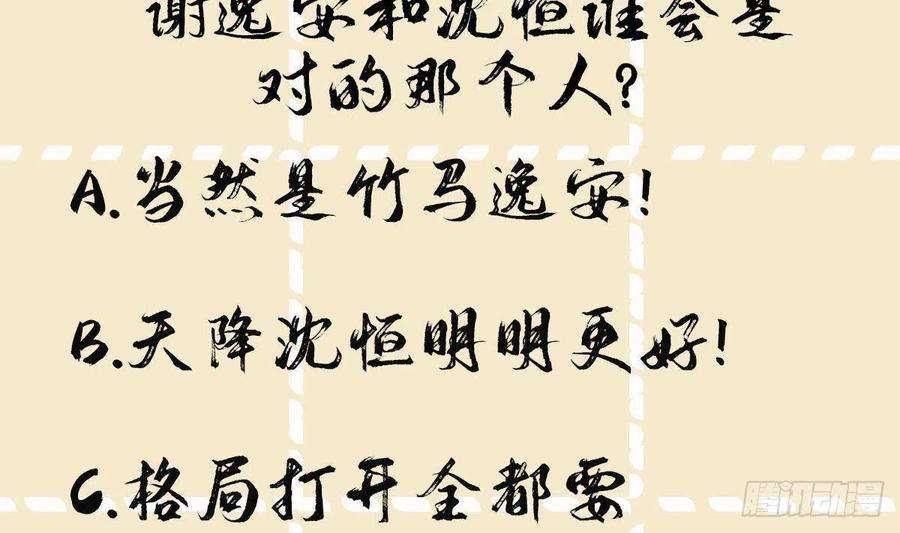 谢逸安和沈恒谁会是
对的那个人?
A.当然是竹马逸安!
B.天降沈恒明明更好!
C.格局打开全都要
腾讯动漫